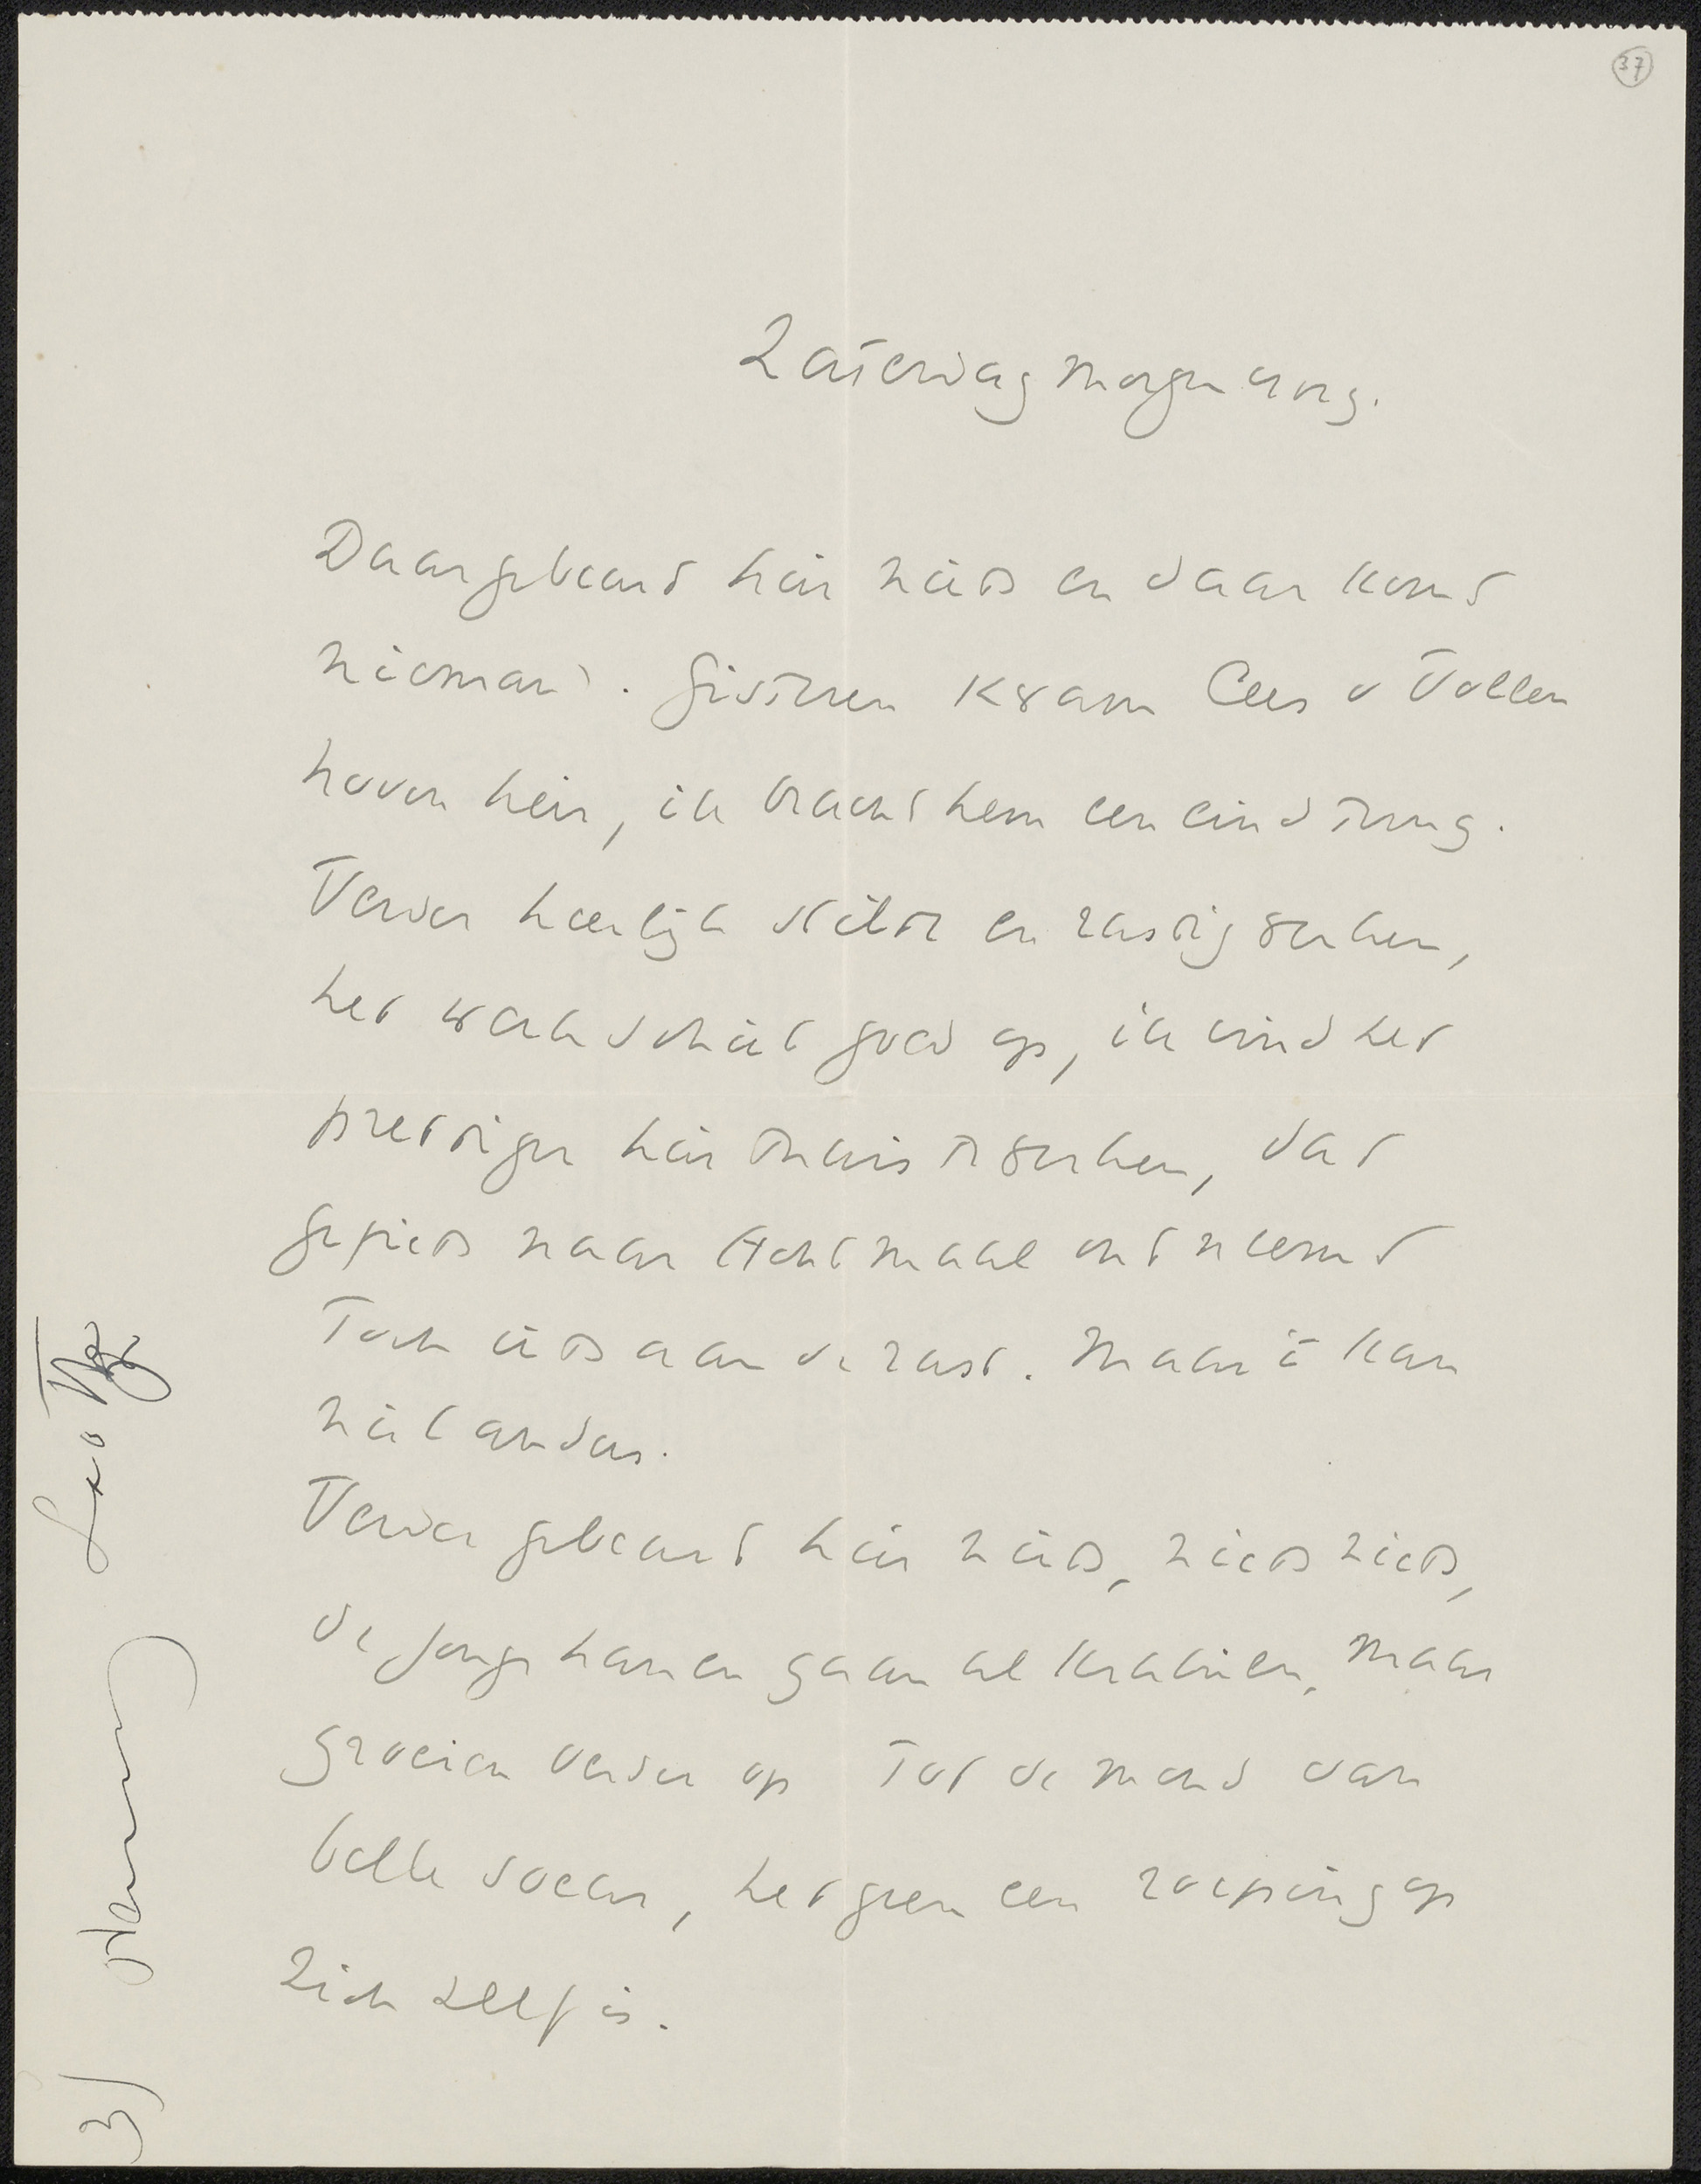 37
Zaterdag morgen
Daar gebeurt hier niets en daar komt
niemand. Gisteren kwam Cees v Vollen
hoven hier, ik bracht hem een eind terug.
Verder heerlijk stilte en rustig werken,
het werk schiet goed op, ik vind het
prettiger hier thuis te werken, dat
gefiets naar Achtmaal ontneemt
toch iets aan de rust. Maar 't kan
niet anders.
Verder gebeurt hier niets, niets niets,
de jonge hanen gaan al kraaien, maar
groeien verder op tot de mond van
belle soeur, hetgeen een roeping op
zich zelf is.
3)